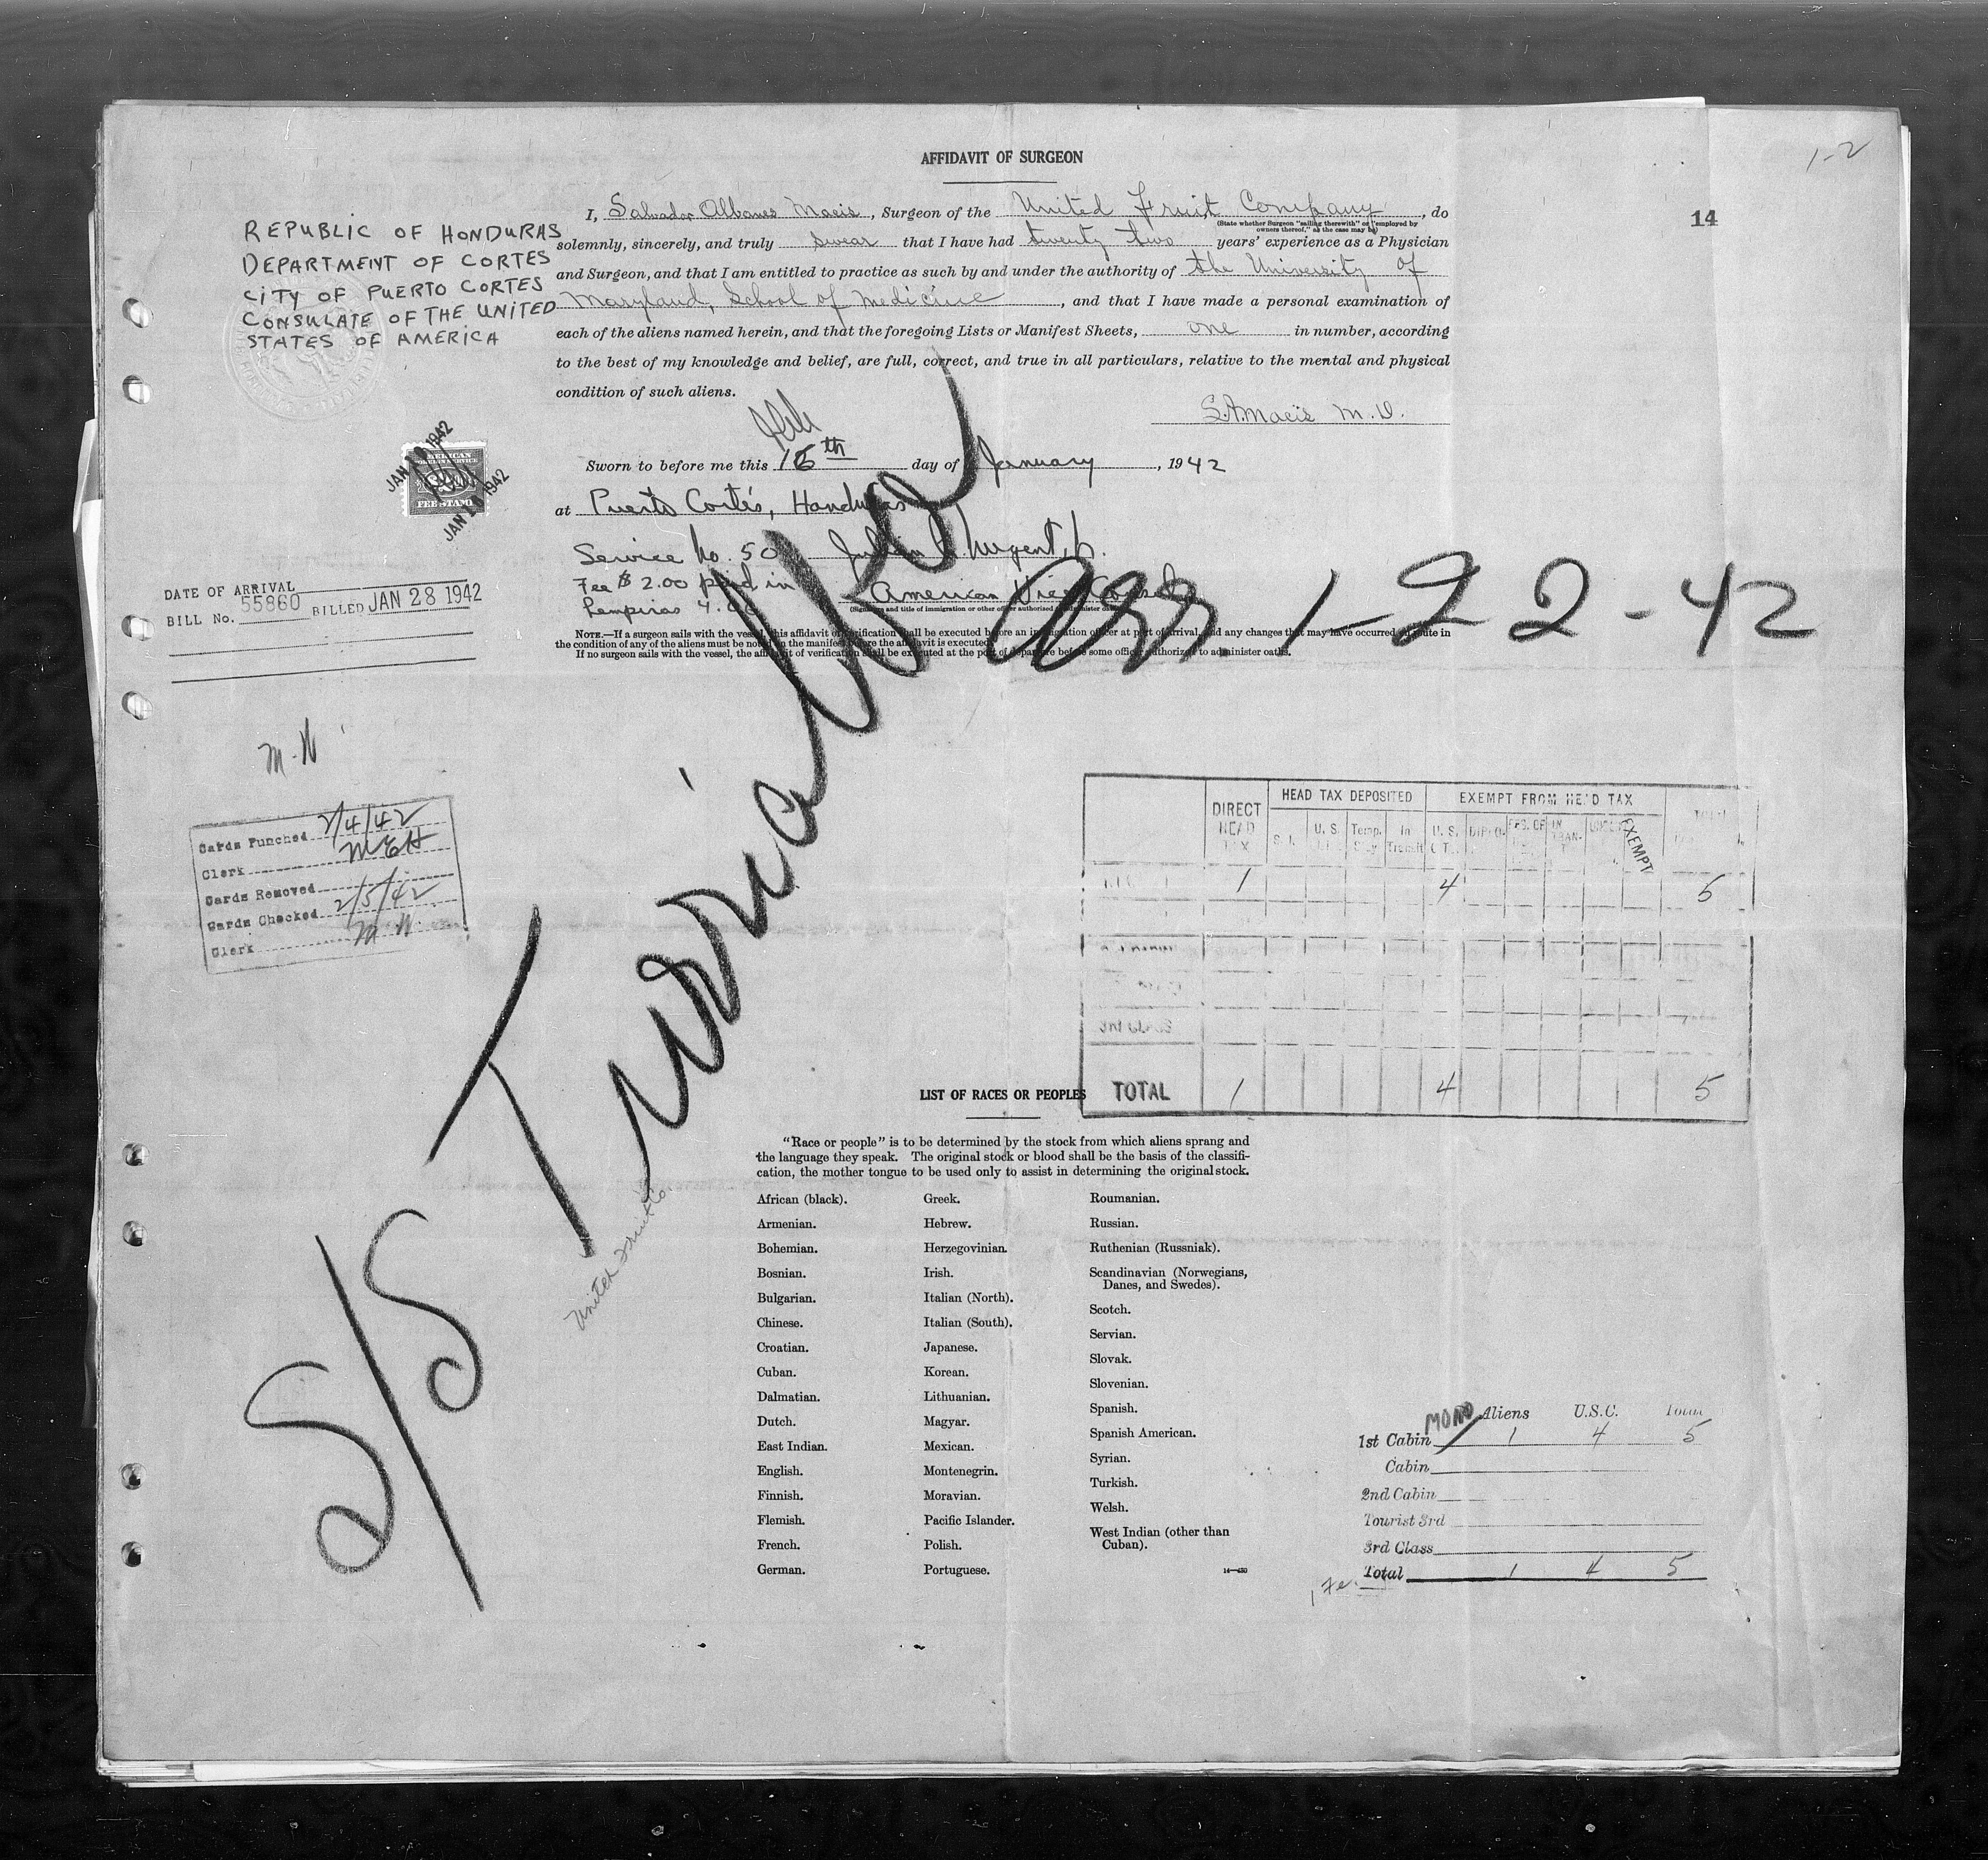 1-2
14
AFFIDAVIT OF SURGEON
REPUBLIC OF HONDURAS
DEPARTMENT OF CORTES
CITY OF PUERTO CORTES
CONSULATE OF THE UNITED
STATES OF AMERICA
I, Salvador Albanes Macis, Surgeon of the United Fruit Company, do
(State whether Surgeon "sailing therewith" or "employed by
owners thereof," as the case may be)
solemnly, sincerely, and truly swear that I have had twenty two years' experience as a Physician
and Surgeon, and that I am entitled to practice as such by and under the authority of the University of
Maryland, School of Medicine, and that I have made a personal examination of
each of the aliens named herein, and that the foregoing Lists or Manifest Sheets, one in number, according
to the best of my knowledge and belief, are full, correct, and true in all particulars, relative to the mental and physical
condition of such aliens.
S.A. Macis M.D.
Sworn to before me this 16th day of January, 1942
at Puerto Cortés, Honduras
Service No. 50 Nugent, Jr.
Fee $ 2.00 paid in American Vice Consul
Lempiras 4.00
NOTE.—If a surgeon sails with the vessel, this affidavit of verification shall be executed before an immigration officer at port of arrival, and any changes that may have occurred en route in
the condition of any of the aliens must be noted on the manifest before the affidavit is executed.
If no surgeon sails with the vessel, the affidavit of verification shall be executed at the port of departure before some officer authorized to administer oaths.
JAN 1942
FEE STAMP
JAN 1942
DATE OF ARRIVAL
BILL No. 55860 BILLED JAN 28 1942
Arr. 1-22-42
M.W
Cards Punched 2/4/42
Clerk MEH
Cards Removed
Cards Checked 2/5/42
Clerk M W.
S/S
United Fruit Co.
DIRECT HEAD TAX
HEAD TAX DEPOSITED
EXEMPT FROM HEAD TAX
U. S. Temp. Stay In Transit U. S. EXEMPT
1 4 5
TOTAL 1 4 5
LIST OF RACES OR PEOPLES
"Race or people" is to be determined by the stock from which aliens sprang and
the language they speak. The original stock or blood shall be the basis of the classifi-
cation, the mother tongue to be used only to assist in determining the original stock.
African (black).
Armenian.
Bohemian.
Bosnian.
Bulgarian.
Chinese.
Croatian.
Cuban.
Dalmatian.
Dutch.
East Indian.
English.
Finnish.
Flemish.
French.
German.
Greek.
Hebrew.
Herzegovinian.
Irish.
Italian (North).
Italian (South).
Japanese.
Korean.
Lithuanian.
Magyar.
Mexican.
Montenegrin.
Moravian.
Pacific Islander.
Polish.
Portuguese.
Roumanian.
Russian.
Ruthenian (Russniak).
Scandinavian (Norwegians,
Danes, and Swedes).
Scotch.
Servian.
Slovak.
Slovenian.
Spanish.
Spanish American.
Syrian.
Turkish.
Welsh.
West Indian (other than
Cuban).
14—430
Aliens U.S.C. Total
1st Cabin 1 4 5
Cabin
2nd Cabin
Tourist 3rd
3rd Class
Total 1 4 5